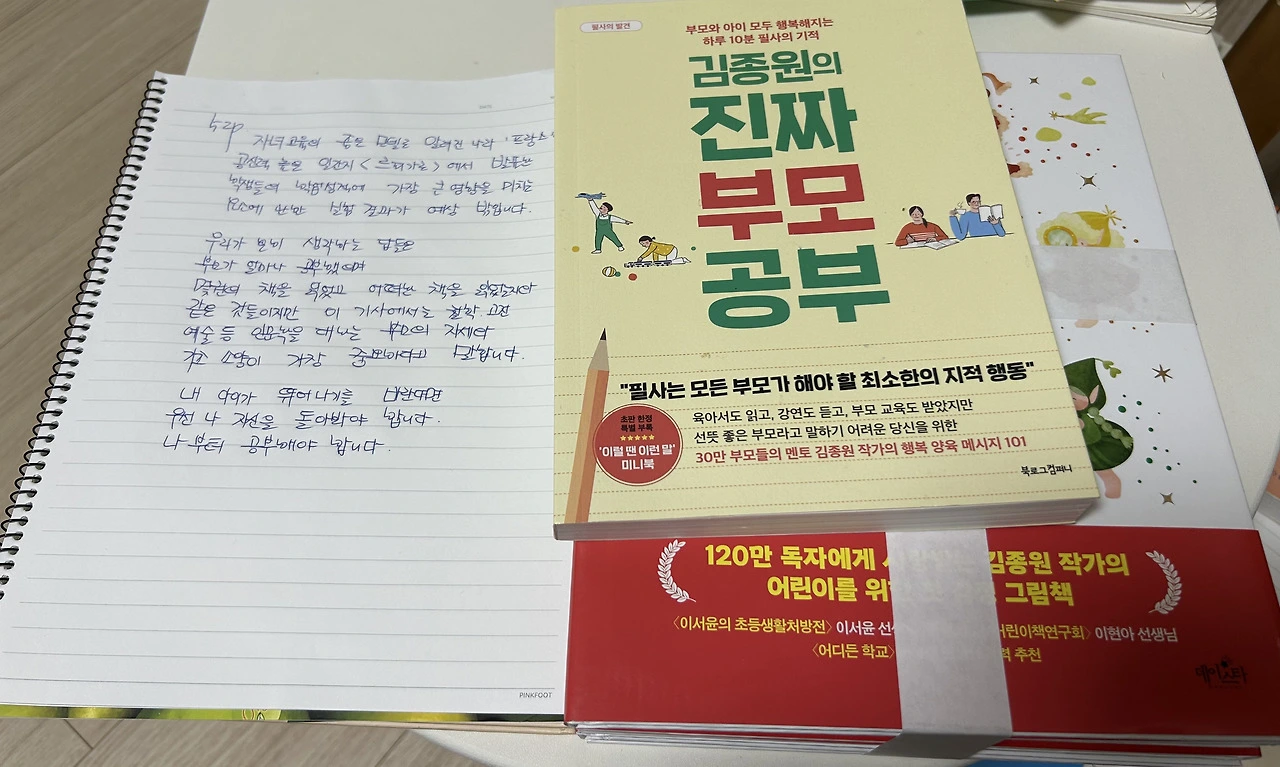 42p
자녀교육의 좋은 모델로 알려진 나라 '프랑스'
공신력 높은 일간지 <르피가로>에서 발표한
학생들의 학업성적에 가장 큰 영향을 미치는
요소에 관한 실험 결과가 예상 밖입니다.
우리가 흔히 생각하는 답들은
부모가 얼마나 공부했으며
몇권의 책을 읽었고 어떠한 책을 읽었는지와
같은 것들이지만 이 기사에서는 철학, 고전
예술 등 인문학을 대하는 부모의 자세와
가장 중요하다고 말합니다.
내 아이가 뛰어나기를 바란다면
우선 나 자신을 돌아봐야 합니다.
나부터 공부해야 합니다.
PINKFOOT
필사의 발견
부모와 아이 모두 행복해지는
하루 10분 필사의 기적
김종원의
진짜
부모
공부
"필사는 모든 부모가 해야 할 최소한의 지적 행동"
육아서도 읽고, 강연도 듣고, 부모 교육도 받았지만
선뜻 좋은 부모라고 말하기 어려운 당신을 위한
30만 부모들의 멘토 김종원 작가의 행복 양육 메시지 101
초판 한정
특별 부록
'이럴 땐 이런 말'
미니북
북로그컴퍼니
120만 독자에게 김종원 작가의
어린이를 그림책
<이서윤의 초등생활처방전> 이서윤 어린이책연구회> 이현아 선생님
<어디든 학교> 추천